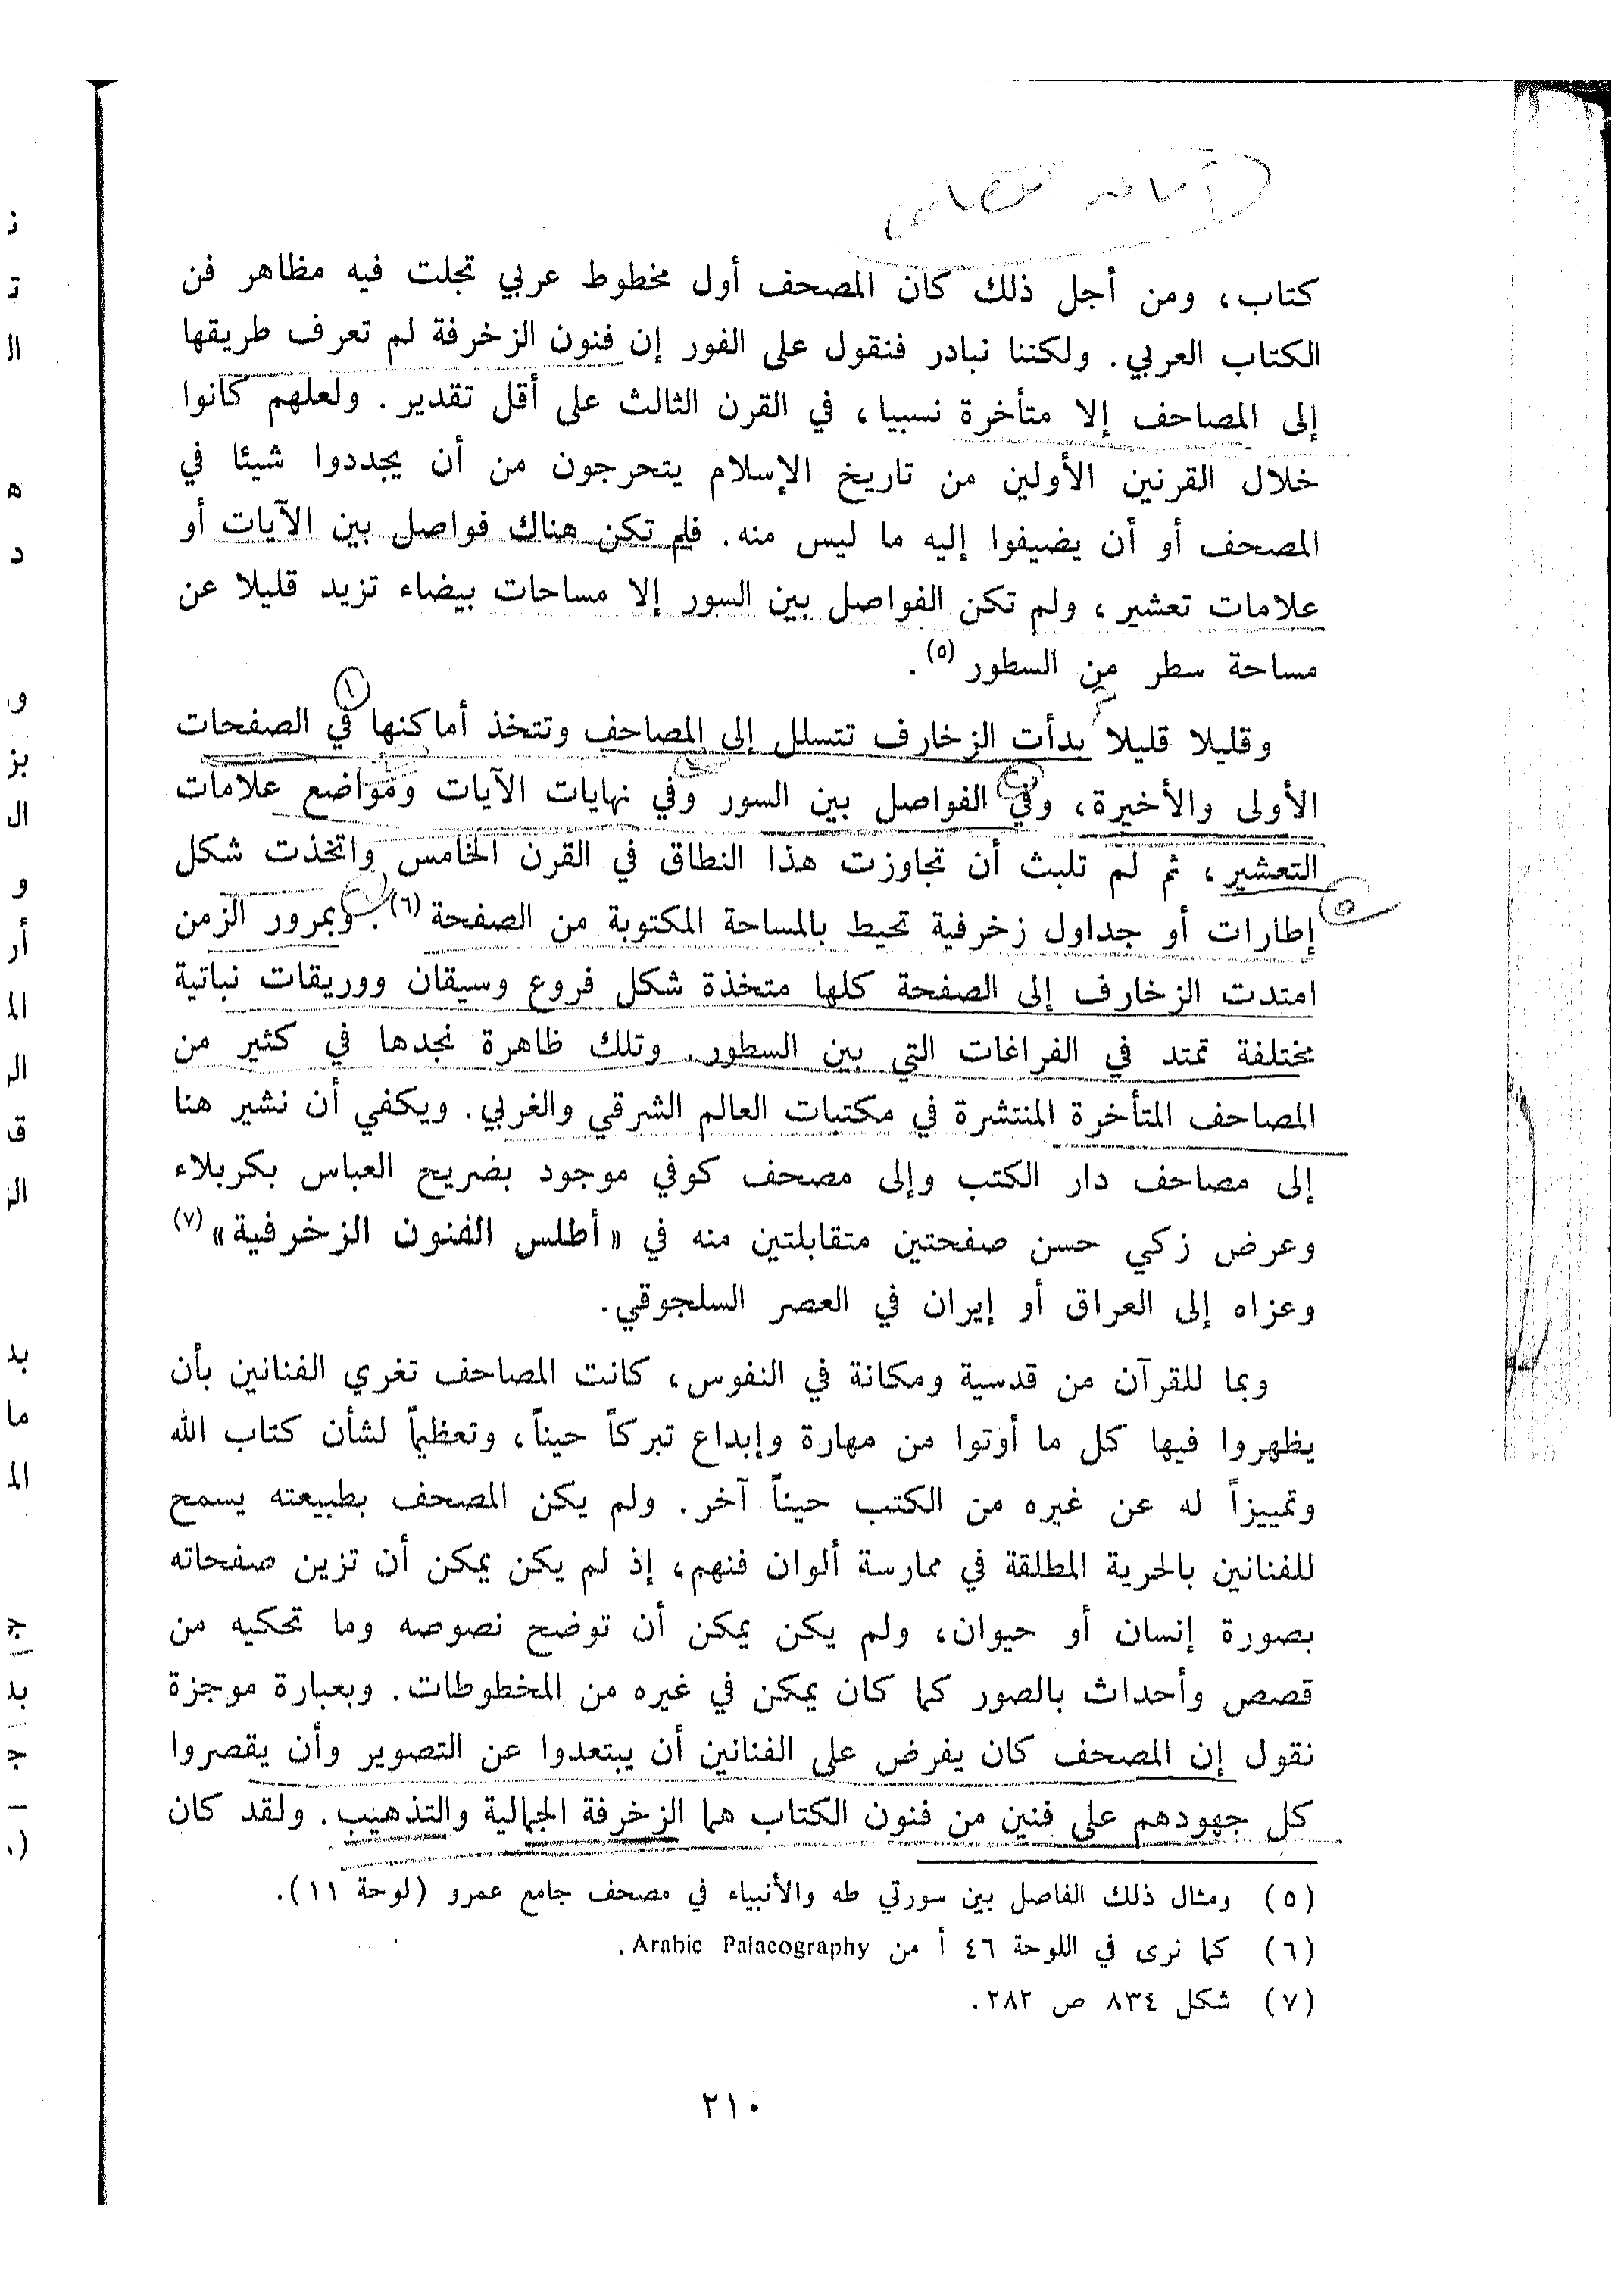 كتاب، ومن أجل ذلك كان المصحف أول مخطوط عربي تجلت فيه مظاهر فن
الكتاب العربي. ولكننا نبادر فنقول على الفور إن فنون الزخرفة لم تعرف طريقها
إلى المصاحف إلا متأخرة نسبيا، في القرن الثالث على أقل تقدير. ولعلهم كانوا
خلال القرنين الأولين من تاريخ الإسلام يتحرجون من أن يجددوا شيئا في
المصحف أو أن يضيفوا إليه ما ليس منه. فلم تكن هناك فواصل بين الآيات أو
علامات تعشير، ولم تكن الفواصل بين السور إلا مساحات بيضاء تزيد قليلا عن
مساحة سطر من السطور (٥).
١
وقليلا قليلا بدأت الزخارف تتسلل إلى المصاحف وتتخذ أماكنها في الصفحات
الأولى والأخيرة، وفي الفواصل بين السور وفي نهايات الآيات ومواضع علامات
التعشير، ثم لم تلبث أن تجاوزت هذا النطاق في القرن الخامس واتخذت شكل
٥
إطارات أو جداول زخرفية تحيط بالمساحة المكتوبة من الصفحة (٦). وبمرور الزمن
امتدت الزخارف إلى الصفحة كلها متخذة شكل فروع وسيقان ووريقات نباتية
مختلفة تمتد في الفراغات التي بين السطور. وتلك ظاهرة نجدها في كثير من
المصاحف المتأخرة المنتشرة في مكتبات العالم الشرقي والغربي. ويكفي أن نشير هنا
إلى مصاحف دار الكتب وإلى مصحف كوفي موجود بضريح العباس بكربلاء
وعرض زكي حسن صفحتين متقابلتين منه في «أطلس الفنون الزخرفية» (٧)
وعزاه إلى العراق أو إيران في العصر السلجوقي.
وبما للقرآن من قدسية ومكانة في النفوس، كانت المصاحف تغري الفنانين بأن
يظهروا فيها كل ما أوتوا من مهارة وإبداع تبركاً حيناً، وتعظيماً لشأن كتاب الله
وتمييزاً له عن غيره من الكتب حيناً آخر. ولم يكن المصحف بطبيعته يسمح
للفنانين بالحرية المطلقة في ممارسة ألوان فنهم، إذ لم يكن يمكن أن تزين صفحاته
بصورة إنسان أو حيوان، ولم يكن يمكن أن توضح نصوصه وما تحكيه من
قصص وأحداث بالصور كما كان يمكن في غيره من المخطوطات. وبعبارة موجزة
نقول إن المصحف كان يفرض على الفنانين أن يبتعدوا عن التصوير وأن يقصروا
كل جهودهم على فنين من فنون الكتاب هما الزخرفة الجمالية والتذهيب. ولقد كان
(٥) ومثال ذلك الفاصل بين سورتي طه والأنبياء في مصحف جامع عمرو (لوحة ١١).
(٦) كما نرى في اللوحة ٤٦ أ من Arabic Palaeography.
(٧) شكل ٨٣٤ ص ٢٨٢.
٢١٠